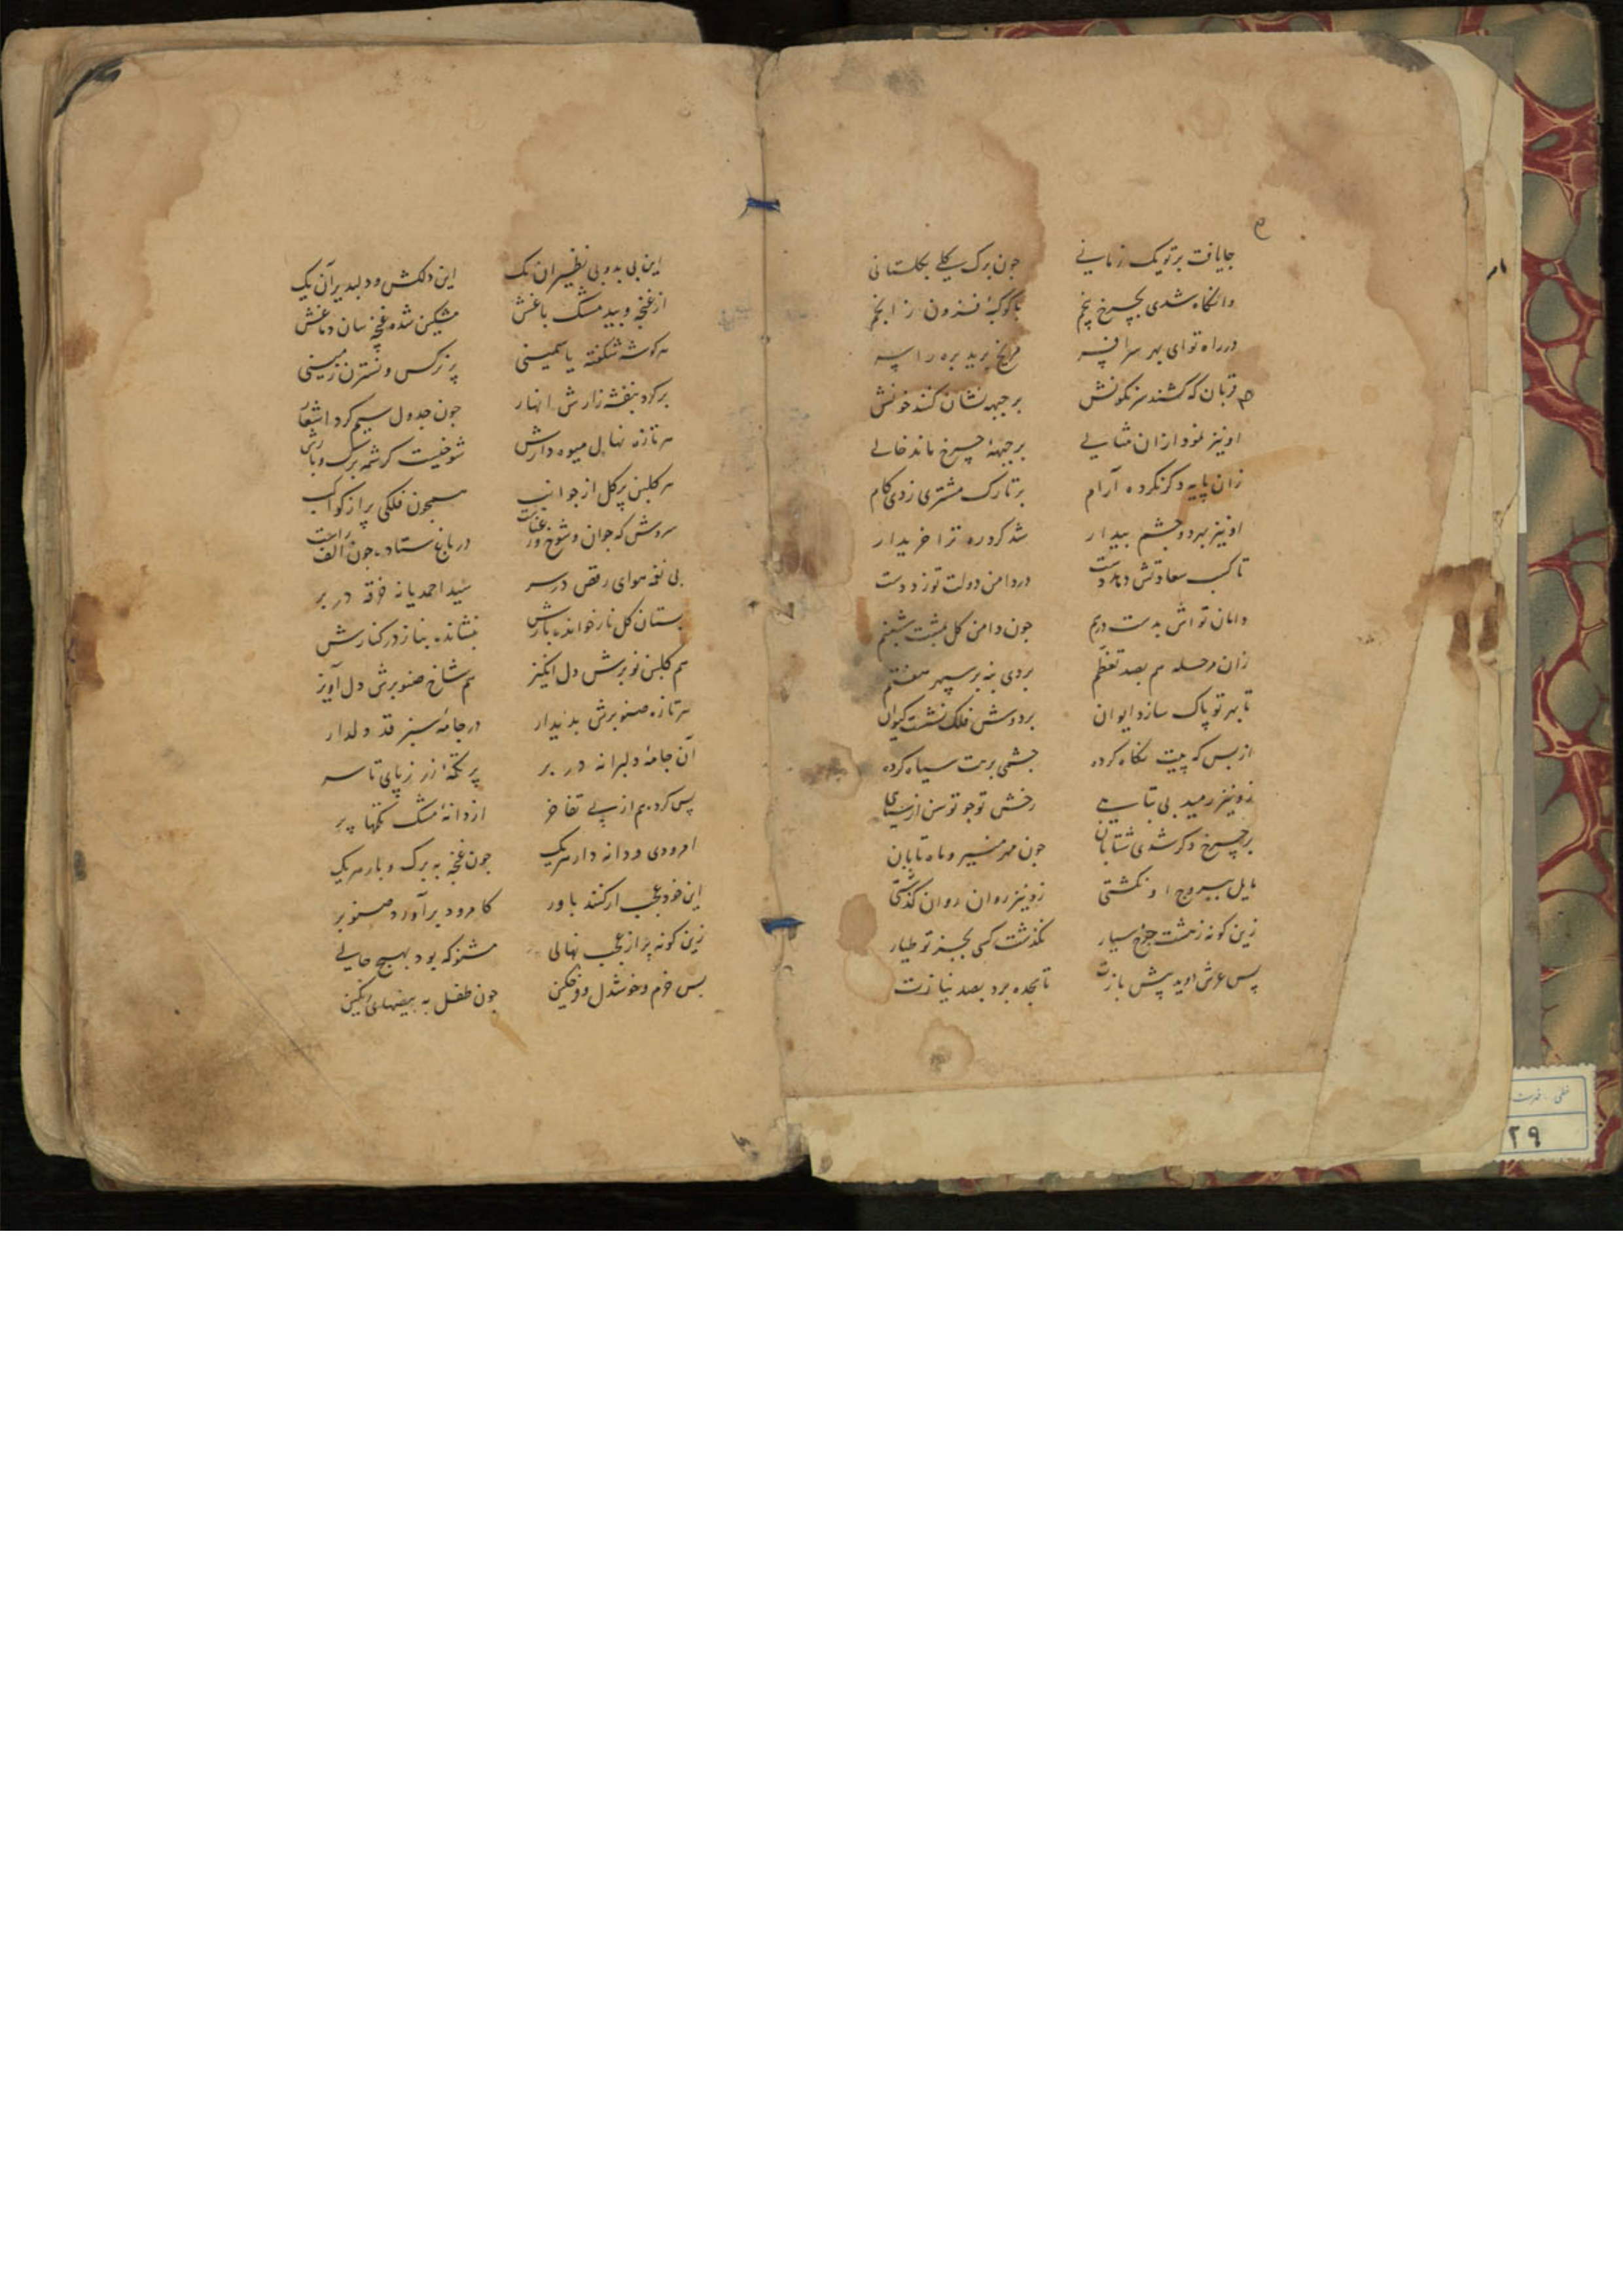 جایافت برتویک زمانی جون برک کلی بکلستانی
وانکاه شدی بچرخ پنجم باکوکبهٔ فزون ز انجم
درراه توای بهر سرافسر مریخ برید بره راسر
قربان که کشند سرنکونش بر جبهه نشان کنند خونش
اونیز نمود ازان مثالی برجبههٔ چرخ ماند خالی
زان پایه دکرنکرده آرام برتارک مشتری زدی کام
اونیز بهر دو چشم بیدار شد کرد ره ترا خریدار
تا کسب سعادتش دهد دست دردامن دولت توزد دست
دامان تواش بدست درهم جون دامن کل بشست شبنم
زان مرحله هم بصد تعظم بردی بنه بر سپهر هفتم
تا بهر تو پاک سازد ایوان بردوش فلک نشست کیوان
ازبس که پیت نکاه کرده جشمی برهت سیاه کرده
زونیز رمید بی تابی رخش توجو توسن از سیاهی
برچرخ دکر شدی شتابان جون مهر منیر و ماه تابان
مایل ببروج او نکشتی زونیز روان روان کذشتی
زین کونه زهشت جرخ سیار نکذشت کسی بجز تو طیار
پس عرش دوید پیش بازت تا سجده برد بصد نیازت
این بی بدو بی نظیران یک این دلکش و دلپذیر آن یک
از غنچه و بید مشک باغش مشکین شده غنچه سان دماغش
هر کوشه شکفته یاسمینی پر نرکس و نسترن زمینی
برکرد بنفشه زارش انهار جون جدول سیم کرد اشعار
هر تازه نهال میوه دارش شوخیست کرشمه برک و بارش
هر کلبن پرکل از جوانب همجون فلکی پر از کواکب
سروش که جوان و شوخ ورعناست درباغ ستاده جون الف راست
بی نغمه هوای رقص درسر سید احمدیانه خرقه در بر
بستان کل نارخوانده بارش بنشانده بناز درکنارش
هم کلبن نوبرش دل انکیز هم شاخ صنوبرش دل آویز
هر تازه صنوبرش بدیدار درجامهٔ سبز قد دلدار
آن جامهٔ دلبرانه در بر پر تکمهٔ زر ز پای تا سر
پس کرده هم ازپی تفاخر از دانهٔ مشک تکمها پر
امرودی ودانه دار هریک جون غنچه به برک و بار هریک
این خود عجب ارکنند باور کامرود برآورد صنوبر
زین کونه پر از عجب نهالی مشنو که بود بهیچ حالی
بس خرم و خوشدل جون طفل به بیضهای رنکین
۲۹